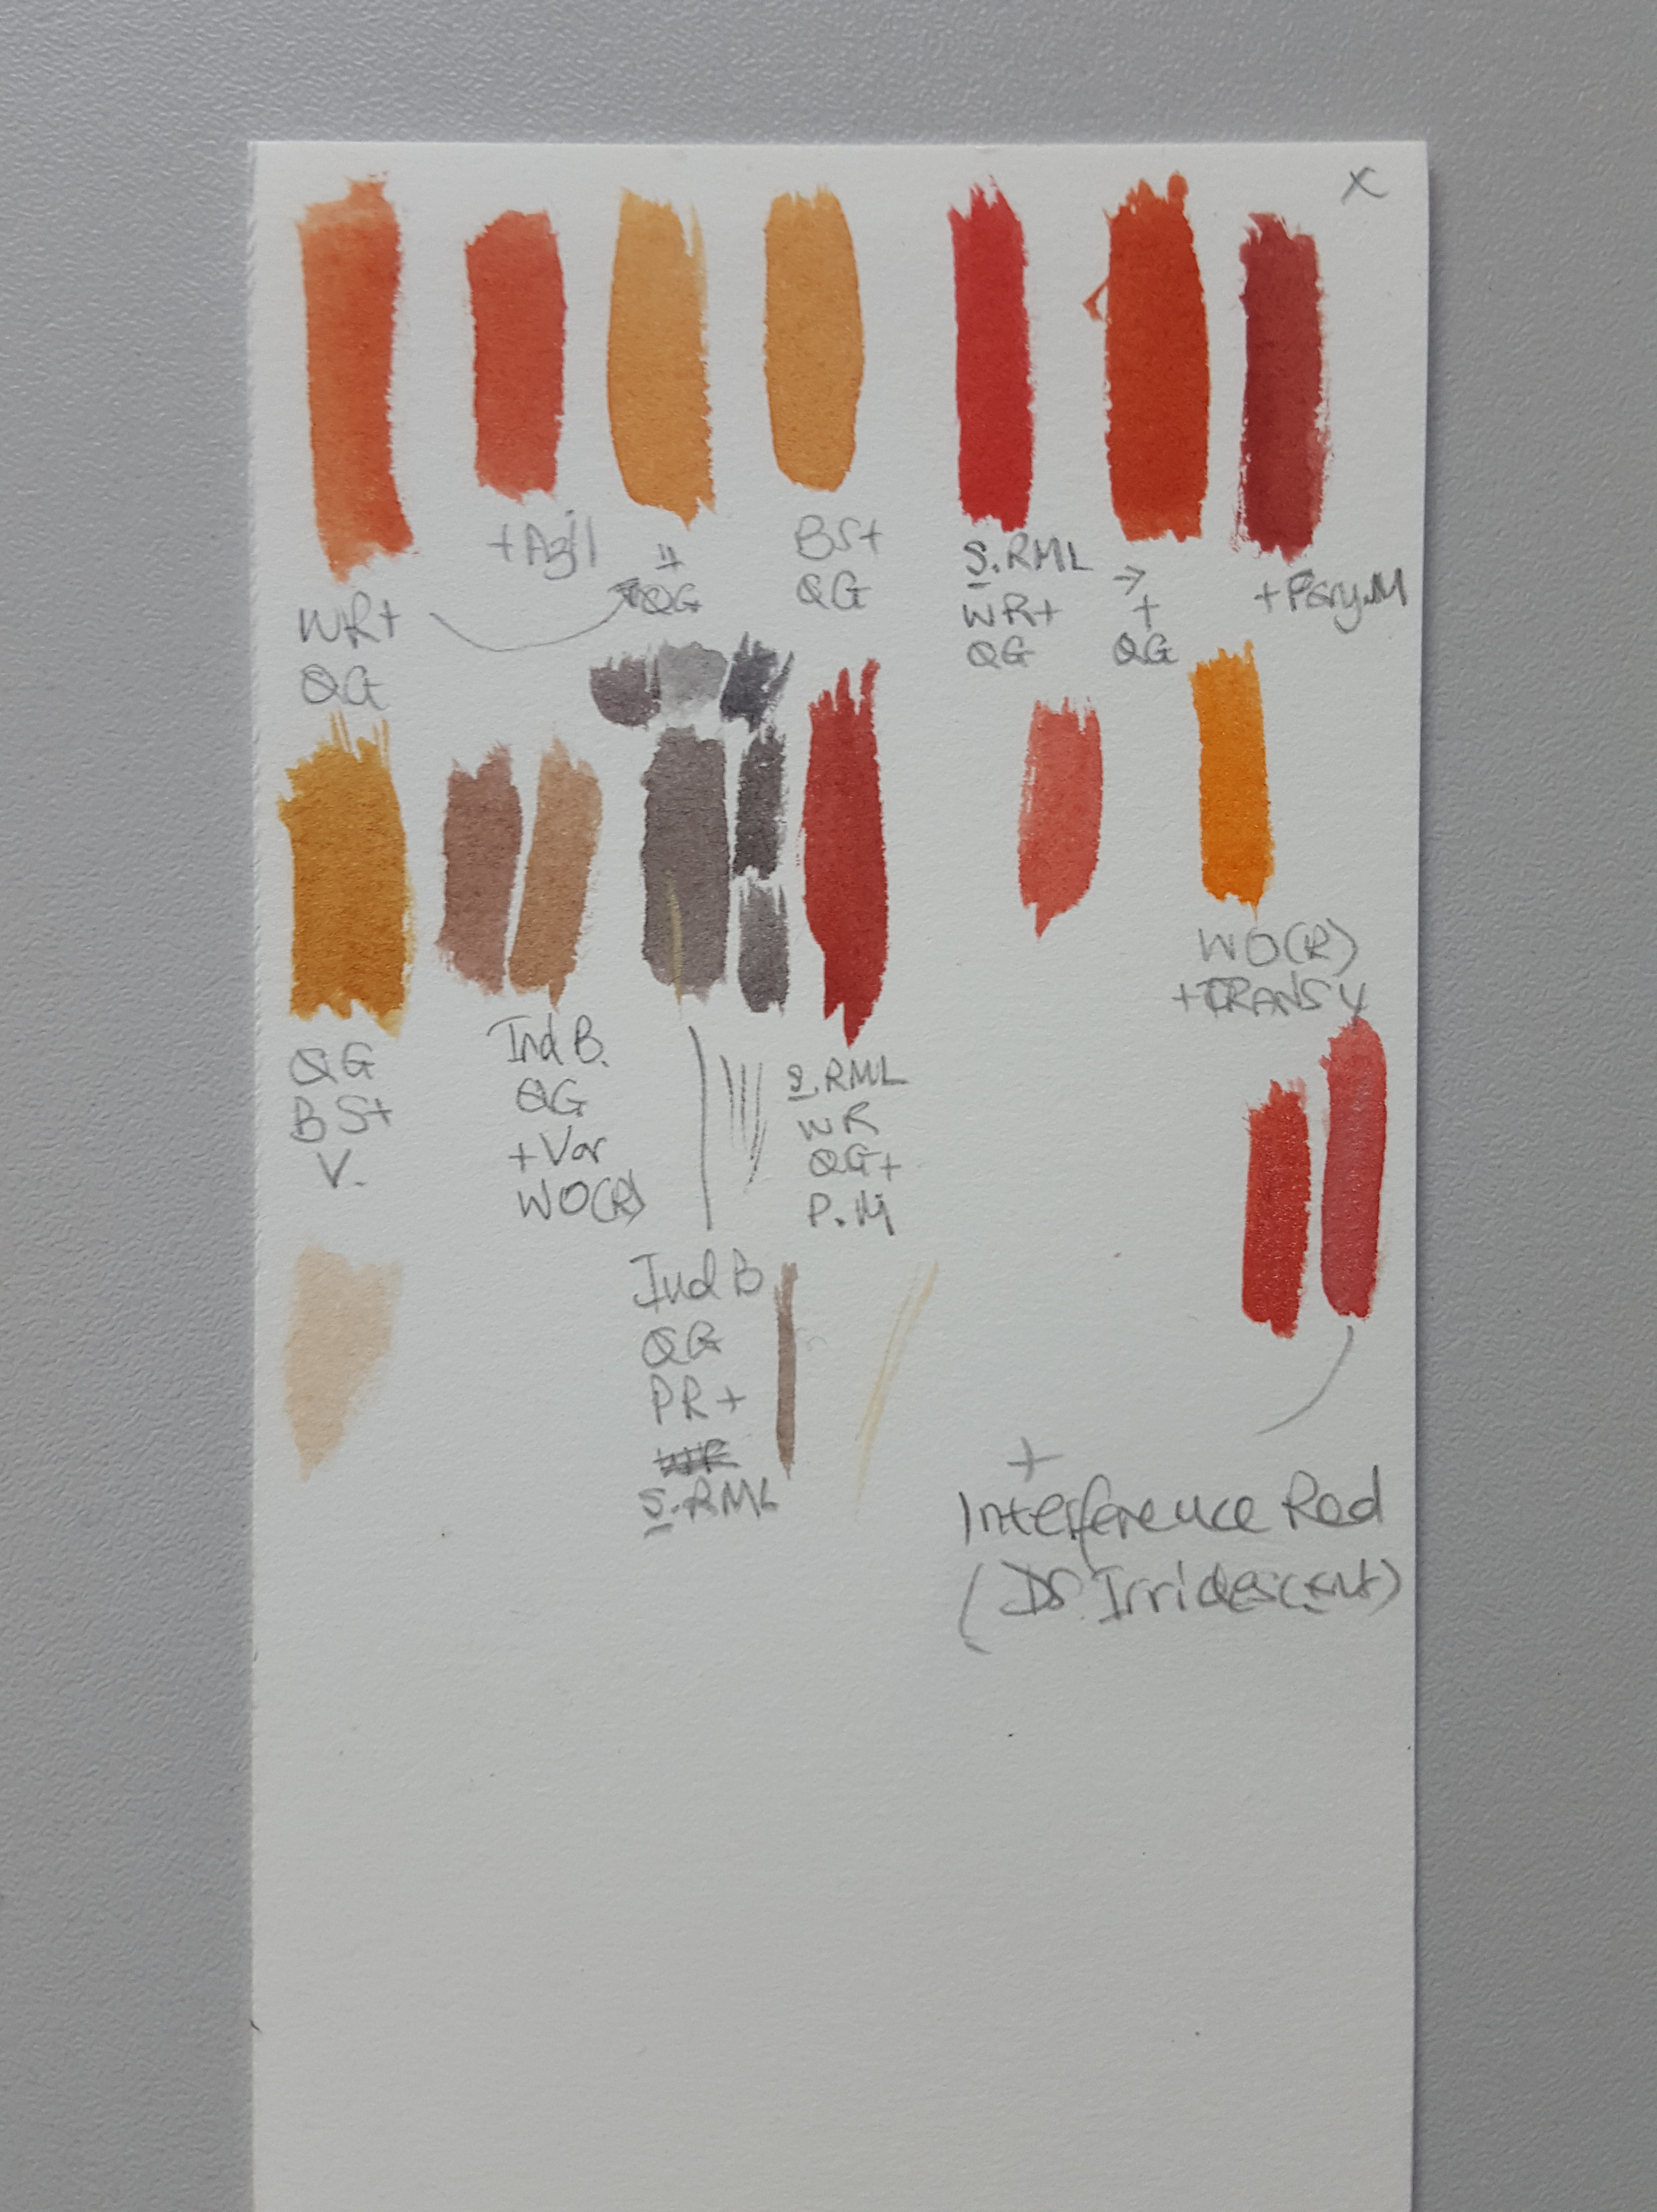 x
WR+
QG
+Azil
"+
QG
BS+
QG
S.RML
WR+
QG
→
+
QG
+Pery.M
QG
BS+
V.
Ind B.
QG
+Var
WO(R)
S.RML
WR
QG+
P.M
WO(R)
+TRANS Y
Ind B
QG
PR+
WR
S.RML
+
Interference Red
(DS. Irridescent)